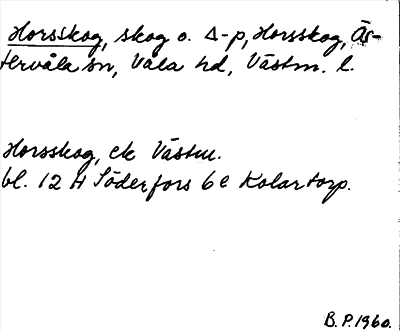 Horsskog, skog o. Δ-p, Horsskog, Ös-
tervåla sn, Våla hd, Västm. l.
Horsskog, ek Västm.
bl. 12 H Söderfors 6e Kolartorp.
B.P. 1960.